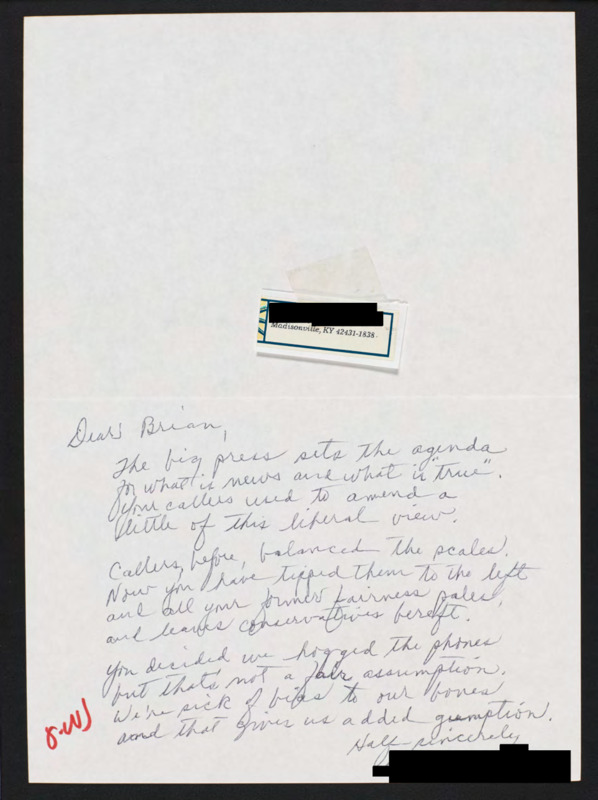 Madisonville, KY 42431-1838
Dear Brian,
The big press sets the agenda
for what is news and what is "true".
Your callers used to amend a
little of this liberal view.
Callers, before, balanced the scales.
Now you have tipped them to the left
and all your former fairness pales,
and leaves conservatives bereft.
You decided we hogged the phones
but that's not a fair assumption.
We're sick of bias to our bones
and that gives us added gumption.
Half sincerely